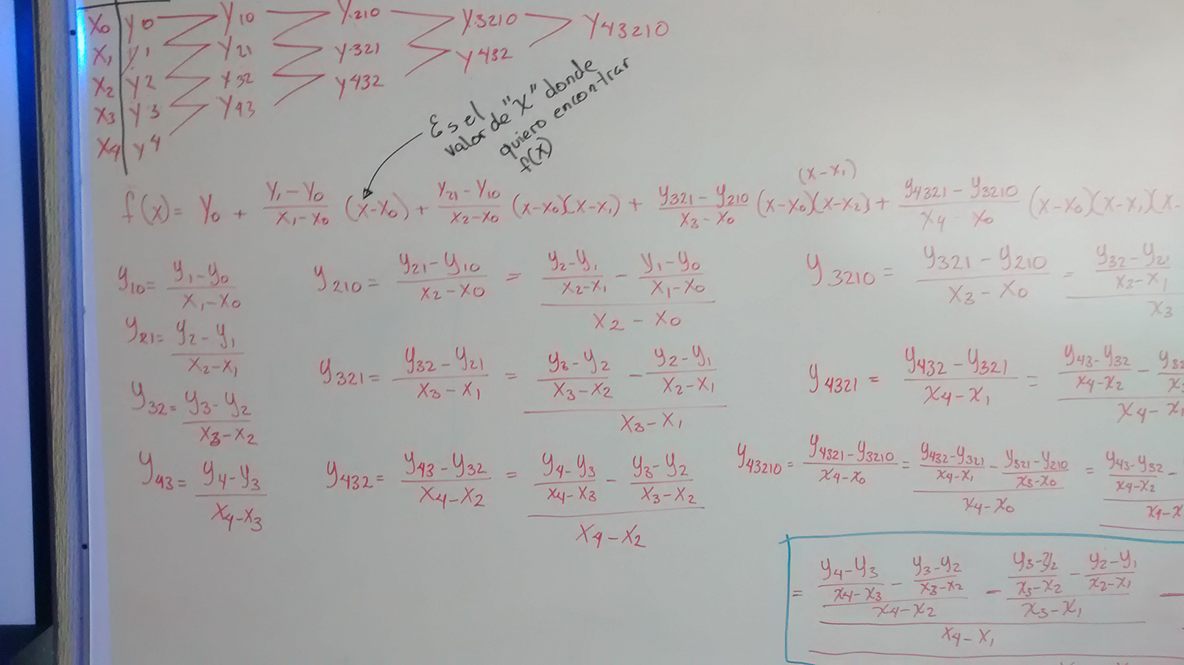 x0 y0 y10 y210 y3210 y43210
x1 y1 y21 y321 y432
x2 y2 y32 y432
x3 y3 y43
x4 y4
Es el
valor de "x" donde
quiero encontrar
f(x)
(x-x1)
f(x) = y0 + (y1-y0)/(x1-x0) (x-x0) + (y21-y10)/(x2-x0) (x-x0)(x-x1) + (y321-y210)/(x3-x0) (x-x0)(x-x2) + (y4321-y3210)/(x4-x0) (x-x0)(x-x1)(x-
y10 = (y1-y0)/(x1-x0) y210 = (y21-y10)/(x2-x0) = ((y2-y1)/(x2-x1) - (y1-y0)/(x1-x0))/(x2-x0) y3210 = (y321-y210)/(x3-x0) = (y32-y21)/(x3-x1) / x3
y21 = (y2-y1)/(x2-x1)
y321 = (y32-y21)/(x3-x1) = ((y3-y2)/(x3-x2) - (y2-y1)/(x2-x1))/(x3-x1) y4321 = (y432-y321)/(x4-x1) = ((y43-y32)/(x4-x2) - y32/x3)/(x4-x1)
y32 = (y3-y2)/(x3-x2)
y43 = (y4-y3)/(x4-x3) y432 = (y43-y32)/(x4-x2) = ((y4-y3)/(x4-x3) - (y3-y2)/(x3-x2))/(x4-x2) y43210 = (y4321-y3210)/(x4-x0) = ((y432-y321)/(x4-x1) - (y321-y210)/(x3-x0))/(x4-x0) = ((y43-y32)/(x4-x2) -)/(x4-x
= (((y4-y3)/(x4-x3) - (y3-y2)/(x3-x2))/(x4-x2) - ((y3-y2)/(x3-x2) - (y2-y1)/(x2-x1))/(x3-x1))/(x4-x1) -